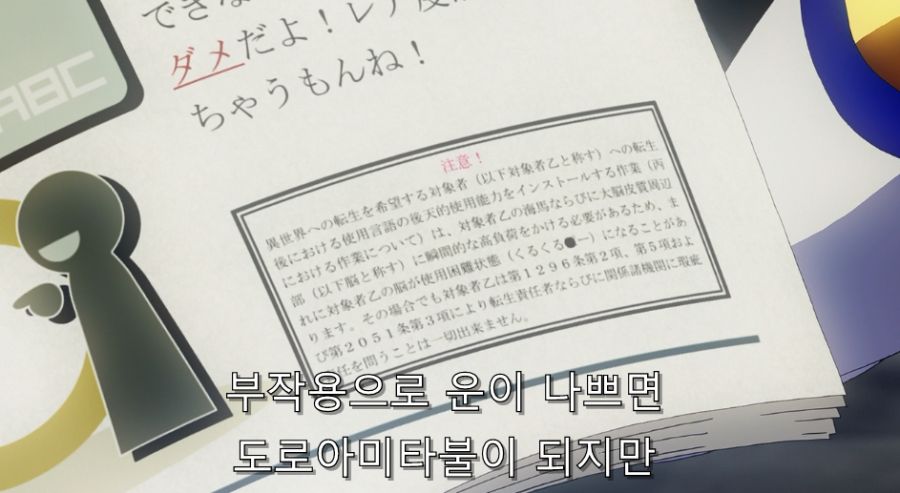 できな
ダメだよ！レア度
ちゃうもんね！
ABC
注意！
異世界への転生を希望する対象者（以下対象者乙と称す）への転生
後における使用言語の後天的使用能力をインストールする作業（丙
における作業について）は、対象者乙の海馬ならびに大脳皮質周辺
部（以下脳と称す）に瞬間的な高負荷をかける必要があるため、ま
れに対象者乙の脳が使用困難状態（くるくる●ー）になることがあ
ります。その場合でも対象者乙は第１２９６条第２項、第５項およ
び第２０５１条第３項により転生責任者ならびに関係諸機関に瑕疵
任を問うことは一切出来ません。
부작용으로 운이 나쁘면
도로아미타불이 되지만